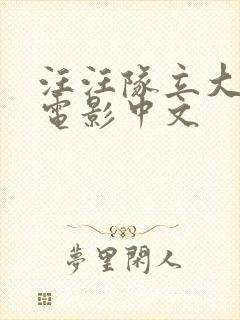 汪汪隊立大
電影中文
夢里閑人